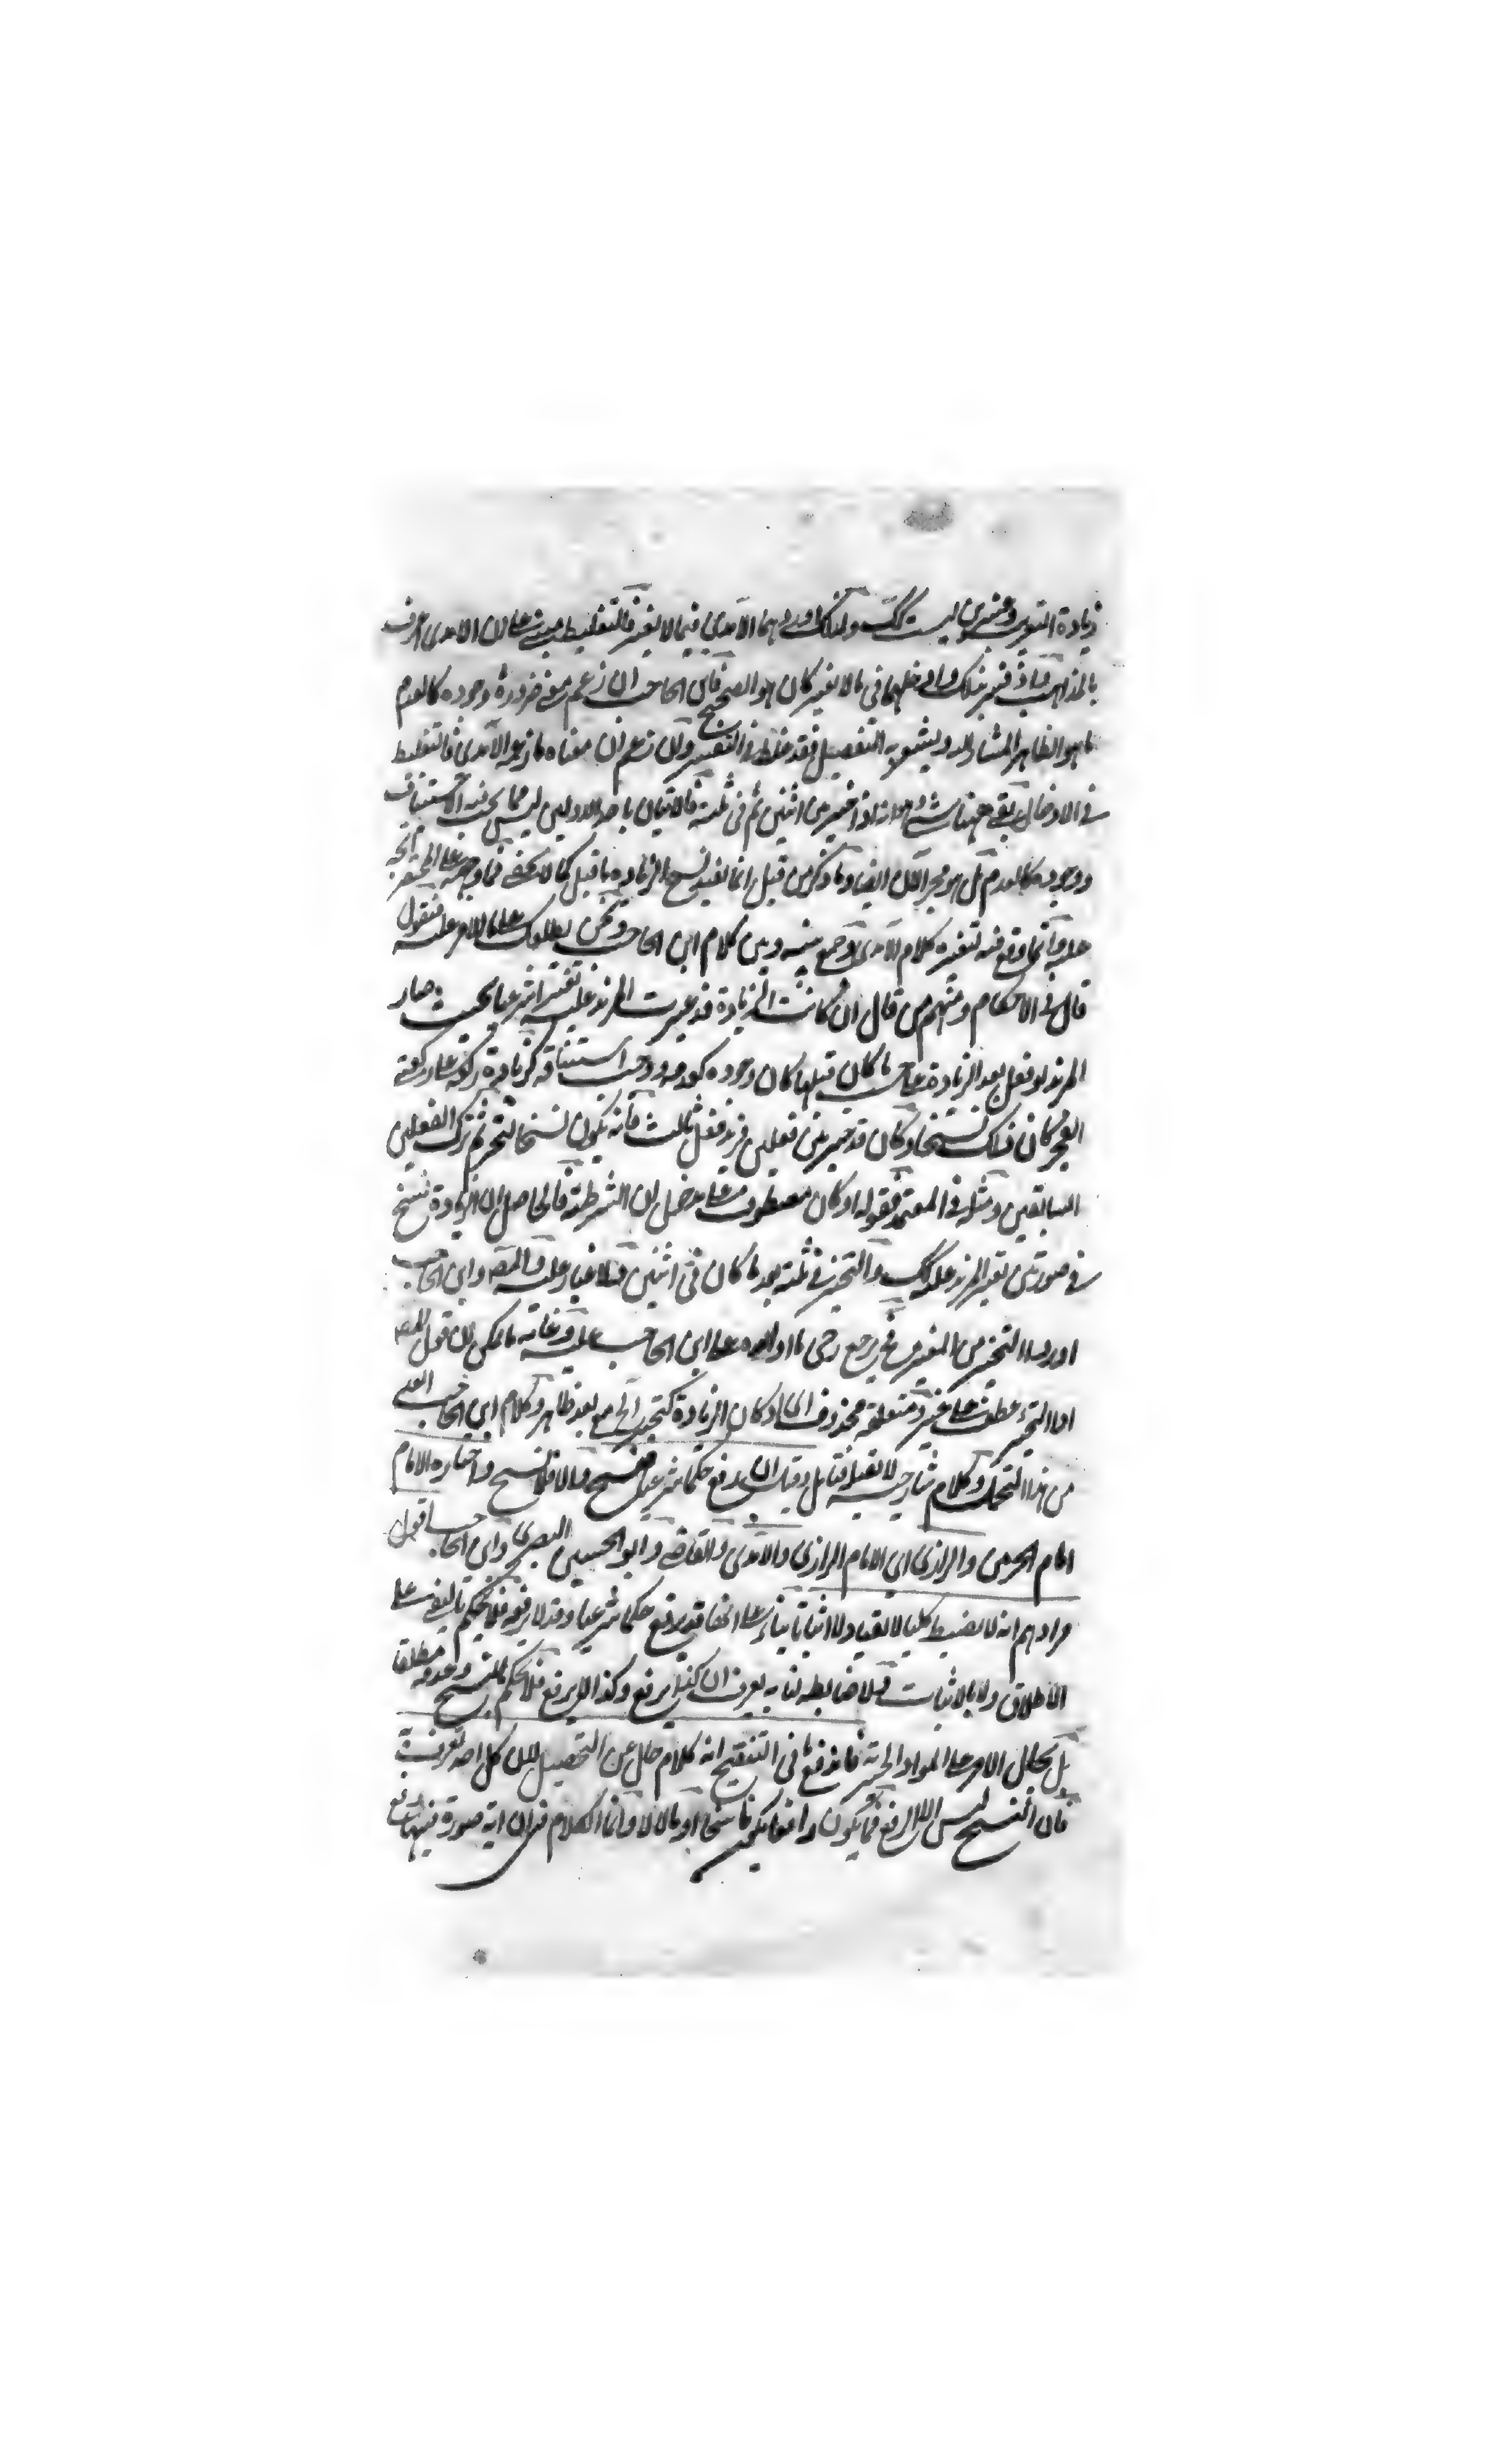 زيادة التغريب وعشرين ليست كك ولذلك اوردهما الآمدي فيما لا يغير فالتغليط مبني على ان الآمدي اعرف
بالمذاهب فاذا فسر بذلك وادخلهما في ما لا يغير كان هو الصحيح فابن الحاجب ان زعم معنى ضرورة وجوده كالعدم
ما هو الظاهر المتبادر التفصيل فقد غلط في التفسير وان زعم ان معناه ما زعمه الآمدي فالتغليط
في الادخال بقي ههنا شيء هو انه اذا خير من اثنين ثم في ثلثة فالاتيان باحد الاولين ليس مما يجب فيه الاستيناف
ووجوده كالعدم بل هو مجز الآن ايضا وما ذكر من قبل انما يفيد نسخ الزيادة ما قبل كما لا يخفى فما وجه
عليه وانما وقع فيه لتغييره كلام الآمدي وجمع بينه وبين كلام ابن الحاجب ونحن نطلعك على ما الامر عليه فنقول
قال في الاحكام ومنهم من قال ان كانت الزيادة قد غيرت المزيد عليه تغييرا شرعيا بحيث صار
المزيد لو فعل بعد الزيادة على حسب ما كان قبلها كان وجوده كعدمه ووجب استينافه كزيادة ركعة على ركعتي
الفجر كان ذلك نسخا او كان قد خير بين فعلين فزيد فعل ثالث فانه يكون نسخا لتحريم ترك الفعلين
السابقين ومثله في المعتمد فقوله او كان معطوف على مدخل ان الشرطية فالحاصل ان الزيادة نسخ
في صورتين تغير المزيد عليه كك والتخيير في ثلثة بعد ما كان في اثنين فلا غبار عليه والمصه وابن الحاجب
اوردا التخيير من المغير فح يرجع رحى ما اورده على ابن الحاجب عليه وغاية ما يمكن ان قول المصه
او التخيير عطف على غير ومتعلقه محذوف اي او كان الزيادة كتخيير الخ مع بعد ظاهر وكلام ابن الحاجب
من هذا التحمل وكلام شارحيه لا يقبل فتأمل وقيل ان رفع حكما شرعيا فنسخ والا فلا نسخ واختاره الامام
امام الحرمين والرازي اي الامام الرازي والآمدي والقاضي وابو الحسين البصري وابن الحاجب اقول
مرادهم انه لا يضبط كليا لا نفيا ولا اثباتا بناء على انها قد يرفع حكما شرعيا وقد لا يرفعه فلا يحكم بالنفي على
الاطلاق ولا بالاثبات فلا ضابطه لنا به يعرف ان كذا يرفع وكذا لا يرفع فلا يحكم بالنسخ وعدمه مطلقا
بل يحال الامر على المواد الجزئية فاندفع ما في التنقيح انه كلام خال عن التحصيل لان كل احد يعرف
فان النسخ ليس الا الرفع فما يكون رافعا يكون ناسخا وما لا لا وانما الكلام في ان اية صورة فيها رفع